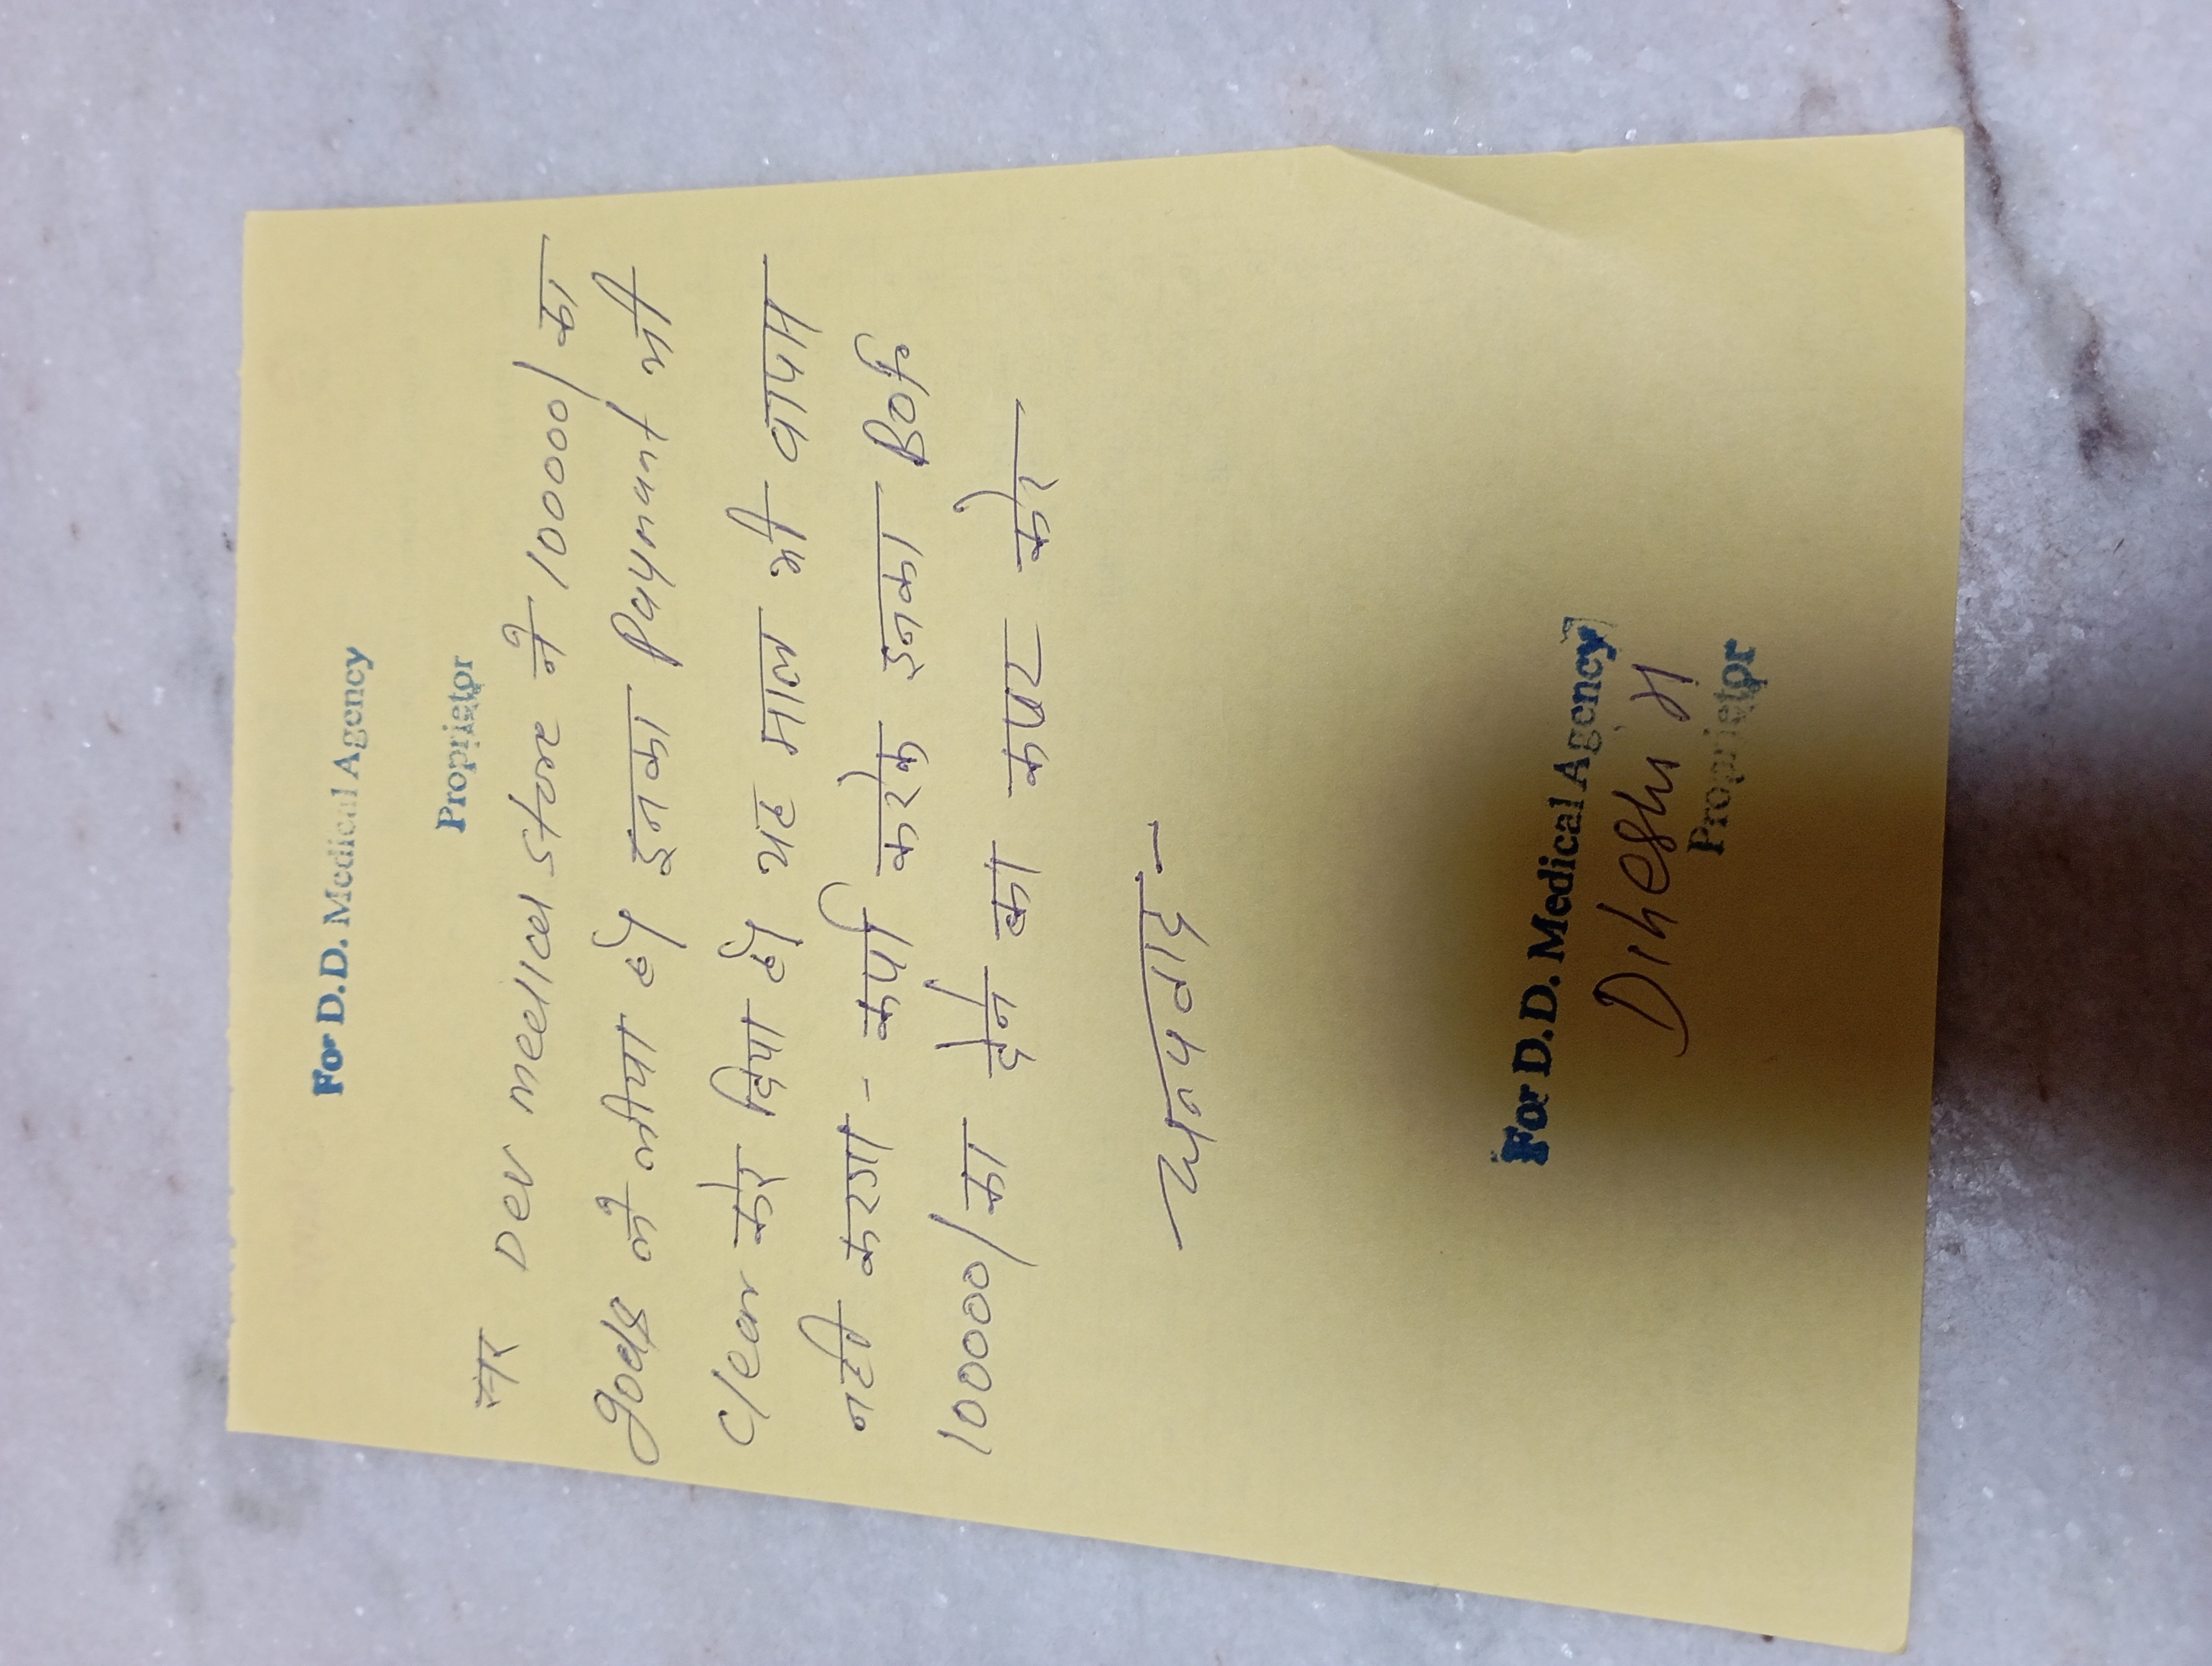 For D.D. Medical Agency
Proprietor
सर Dev medical store ने 100000/ का
goods ले लीया है इनका Paymant भी
Clear कर दिया है यह माल भी वापस
नही करगा - कर्पा करके इनका
100000/ का देने का कषट करे
धन्यवाद -
For D.D. Medical Agency
Dihesh
Proprietor